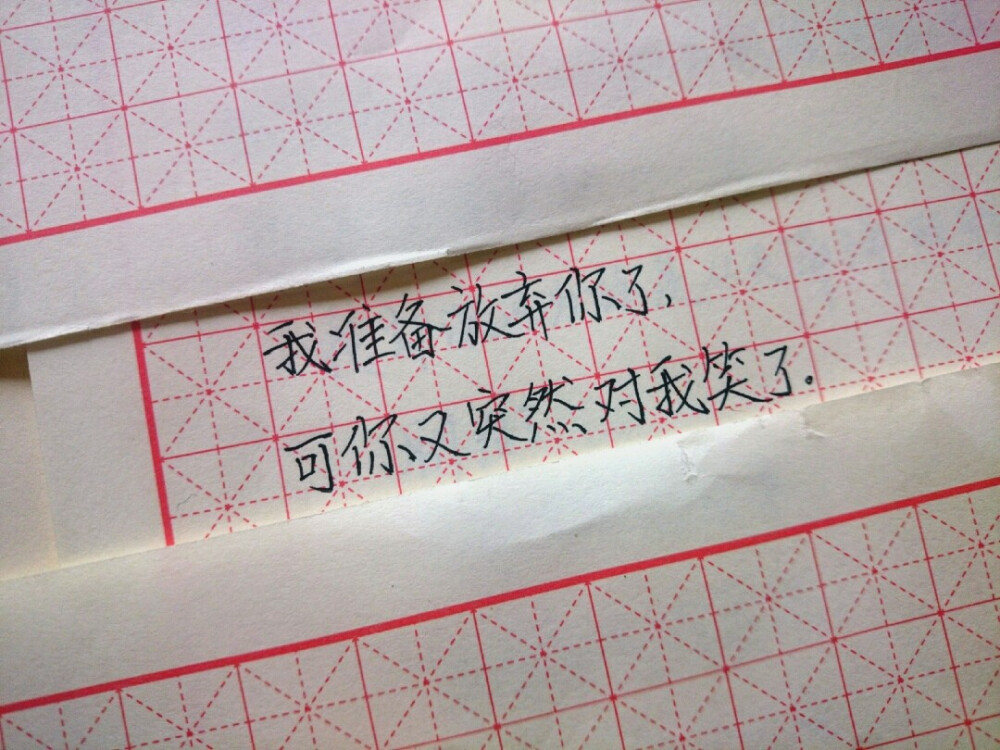 我准备放弃你了,
可你又突然对我笑了.